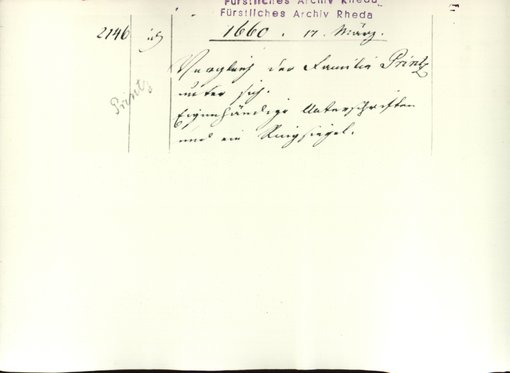 Fürstliches Archiv Rheda
Fürstliches Archiv Rheda
2146
1660. 17. März.
Vergleich der Familie Printz
unter sich.
Eigenhändige Unterschriften
und ein Ringsiegel.
Printz